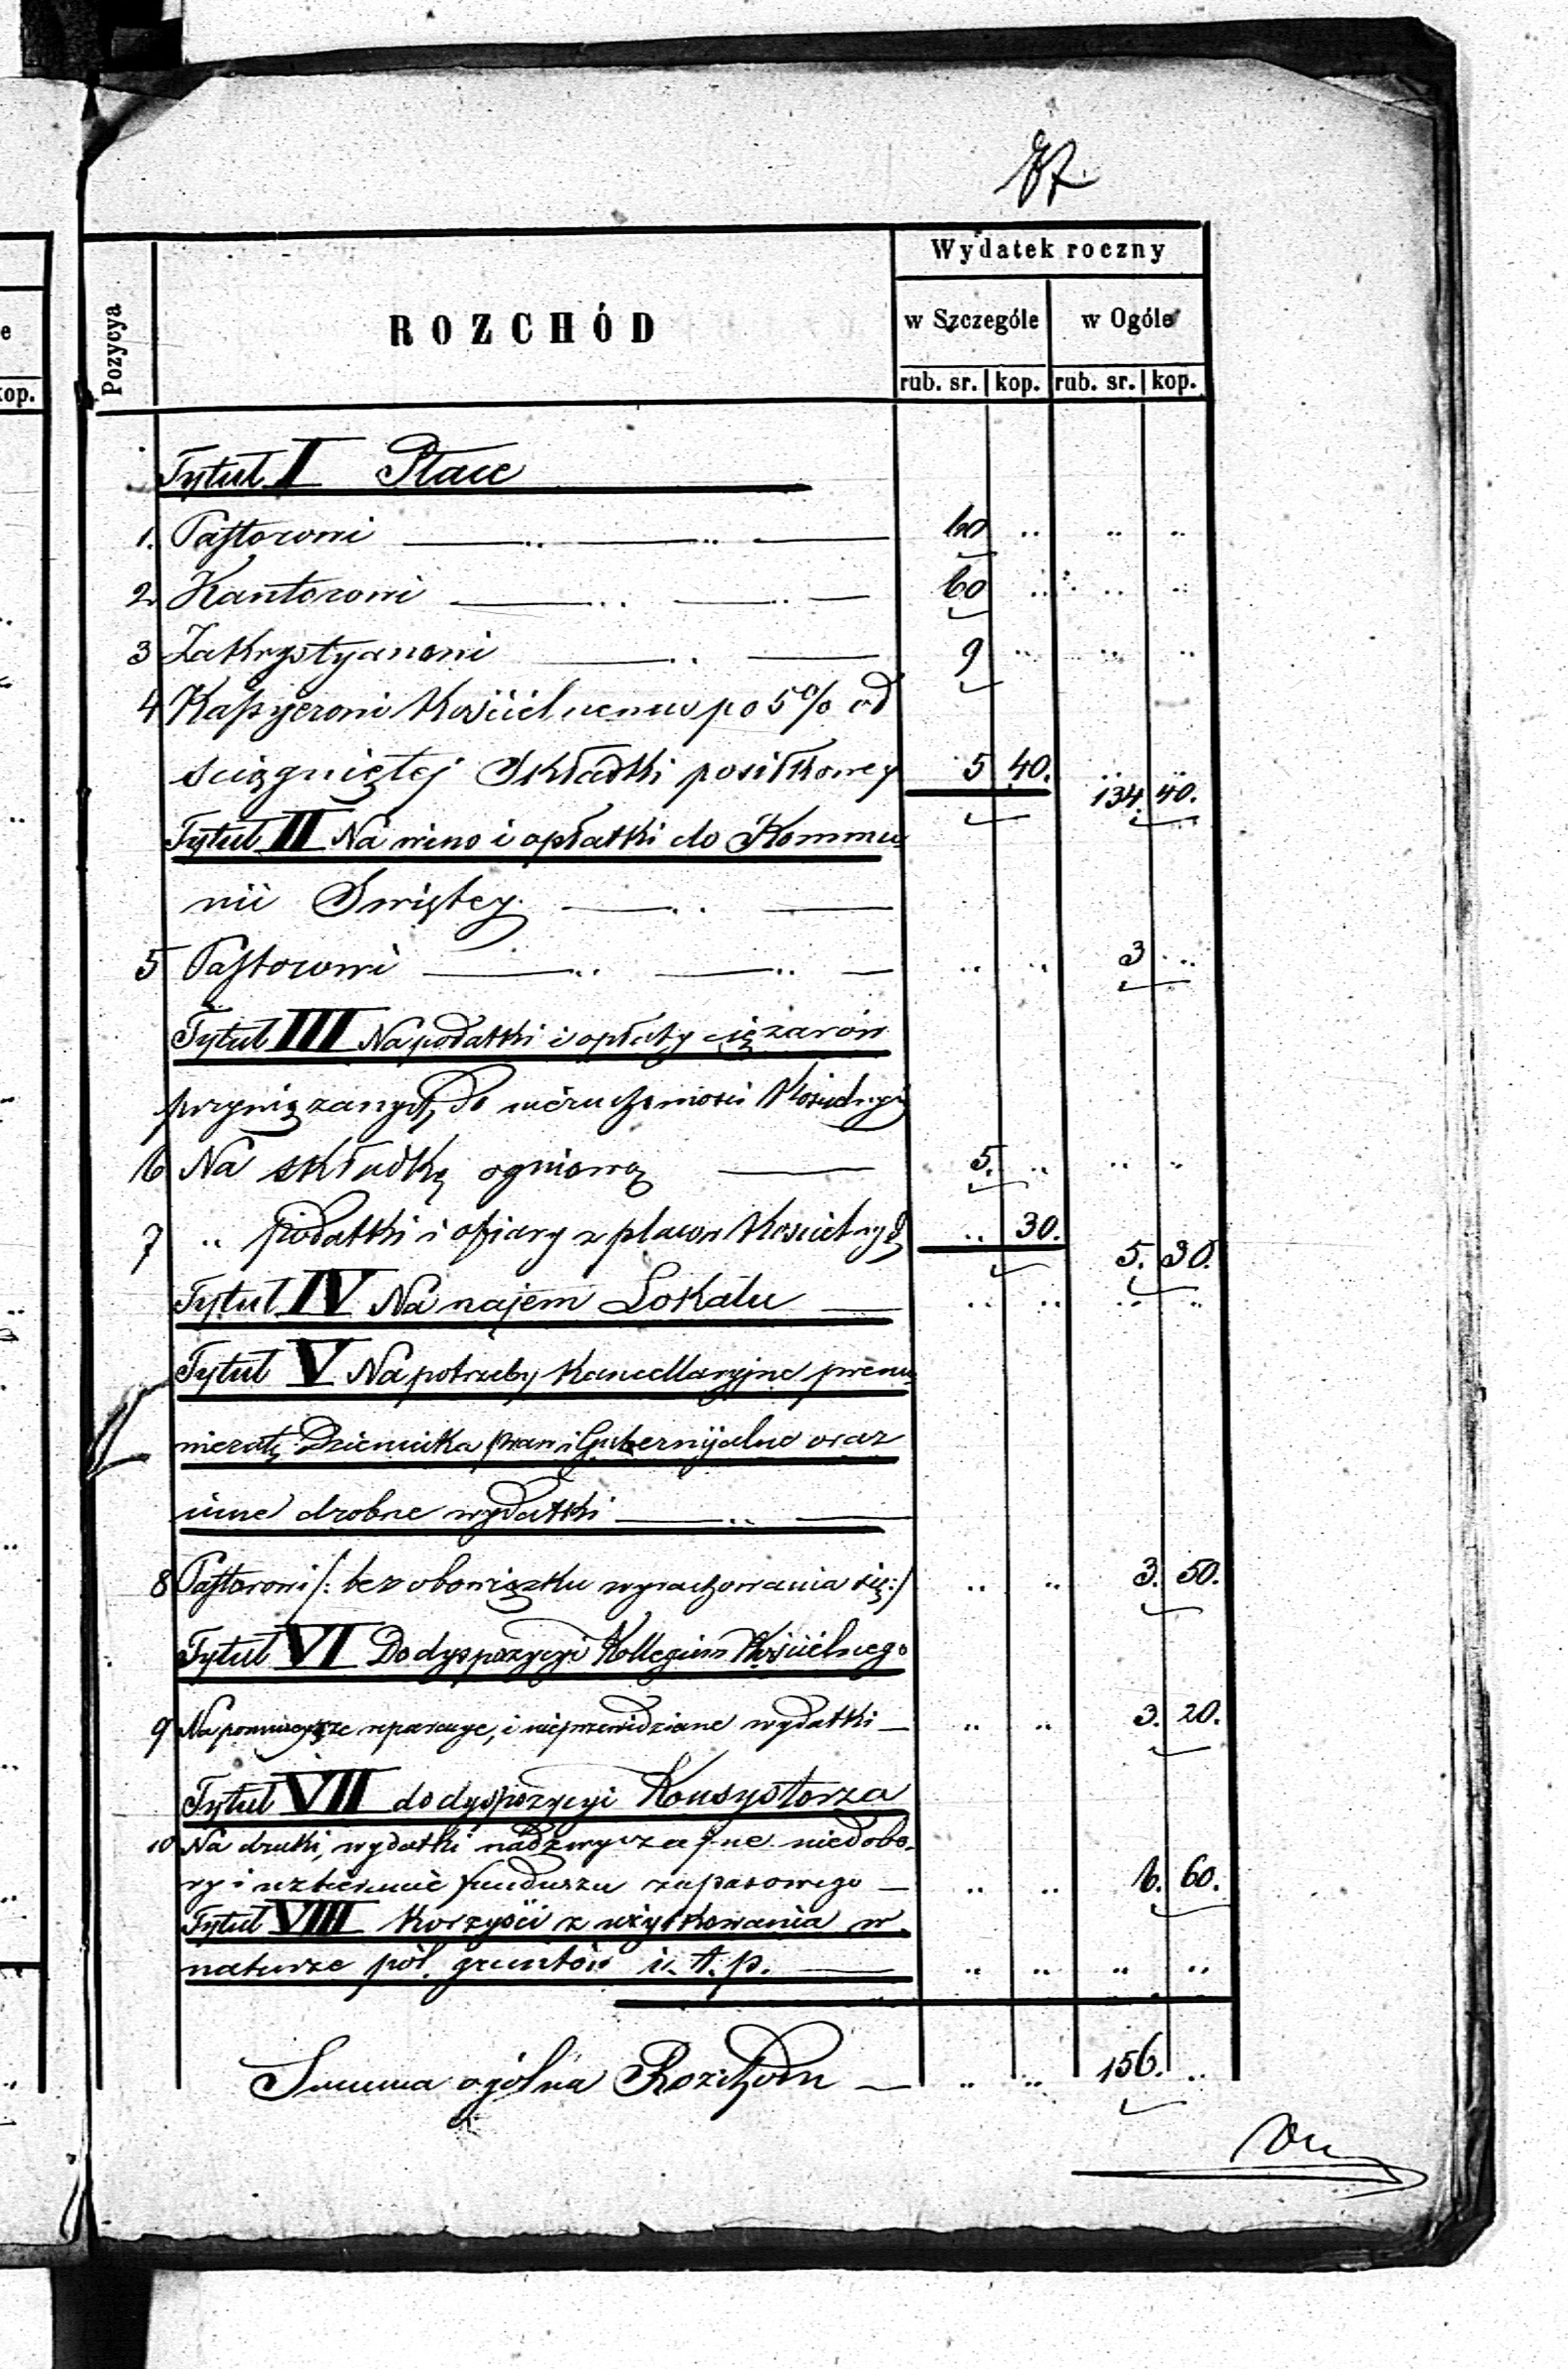 87.
Wydatek roczny
Pozycya
ROZCHÓD
w Szczególe w Ogóle
rub. sr. kop. rub. sr. kop.
e
kop.
Tytuł I Płace
1. Pastorowi — .. — .. — 60 .. .. ..
2. Kantorowi — .. — .. — 60 .. .. ..
3 Zakrystyanowi — .. — 9 .. .. ..
4 Kassyerowi Kościelnemu po 5% od
ściągniętej Składki posiłkowey 5 40. 134. 40.
Tytuł II Na wino i opłatki do Kommu
nii Swiętey. — .. —
5 Pastorowi — .. — .. — .. .. 3 ..
Tytuł III Na podatki i opłaty ciężarów
przywiązanych do nieruchomości Kościelnych
6 Na składkę ogniową — 5. .. .. ..
7 .. podatki i ofiary z placów Kościelnych .. 30. 5. 30.
Tytuł IV Na najem Lokalu — .. .. .. ..
Tytuł V Na potrzeby Kancellaryjne prenu
meratę Dziennika praw i Gubernijalne oraz
inne drobne wydatki — .. —
8 Pastorowi /: bez obowiązku wyrachowania się :/ .. .. 3. 50.
Tytuł VI Do dyspozycyi Kollegium Kościelnego
9 Na pomniejsze reparacye, i nieprzewidziane wydatki — .. .. 3. 20.
Tytuł VII do dyspozycyi Konsystorza
10 Na druki, wydatki nadzwyczajne niedobo-
ry i uzbieranie funduszu zapasowego — .. .. 6. 60.
Tytuł VIII Korzyści z użytkowania w
naturze pól, gruntów i. t. p. — .. .. .. ..
Summa ogólna Rozchodu — .. .. 156. ..